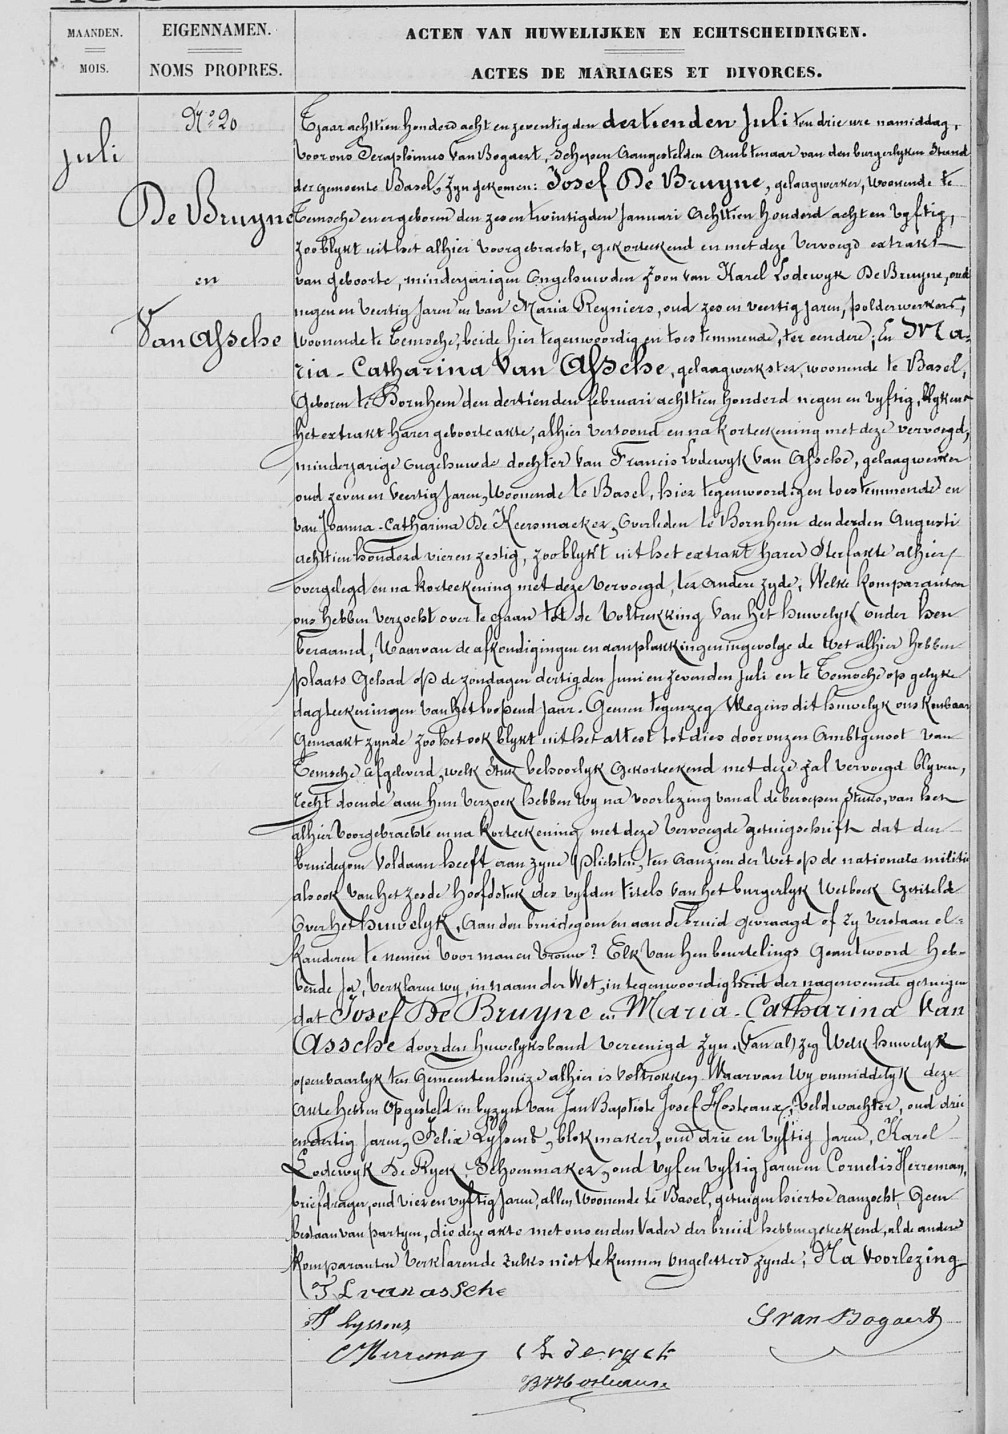 MAANDEN.
MOIS.
EIGENNAMEN.
NOMS PROPRES.
ACTEN VAN HUWELIJKEN EN ECHTSCHEIDINGEN.
ACTES DE MARIAGES ET DIVORCES.
Juli
No 20
De Bruyne
en
Van Assche
Tjaar achttien honderd acht en zeventig den dertienden Juli ten drie ure namiddag,
voor ons Seraphinus Van Bogaert, Schepen Aangestelden Ambtenaar van den burgerlyken Stand
der gemeente Basel, zyn gekomen: Josef De Bruyne, gelaagwerker, woonende te
Temsche en er geboren den zes en twintigden Januari achttien honderd acht en vyftig,
zoo blykt uit het alhier voorgebracht, gekorteekend en met deze vervoegd extrakt
van geboorte, minderjarigen ongehuwden zoon van Karel Lodewyk De Bruyne, oud
negen en veertig Jaren en van Maria Reyniers, oud zes en veertig jaren, polderwerkers,
woonende te Temsche, beide hier tegenwoordig en toestemmende, ter eendere; En Ma-
ria-Catharina Van Assche, gelaagwerkster, woonende te Basel,
Geboren te Bornhem den dertienden februari achttien honderd negen en vyftig, blykens
het extrakt harer geboorteakte, alhier vertoond en na korteekening met deze vervoegd,
minderjarige ongehuwde dochter van Francis Lodewyk Van Assche, gelaagwerker
oud zeven en veertig Jaren, woonende te Basel, hier tegenwoordig en toestemmende en
van Joanna-Catharina De Keersmaeker, overleden te Bornhem den derden Augusti
achttien honderd vier en zestig, zoo blykt uit het extrakt harer Sterfakte alhier
overgelegd en na korteekening met deze vervoegd, ter andere zyde; Welke komparanten
ons hebben verzocht over te gaan tot de voltrekking van het huwelyk onder hen
beraamd, Waarvan de afkondigingen en aanplakkingen ingevolge de Wet alhier hebben
plaats gehad op de zondagen dertigden Juni en zevenden Juli en te Temsche op gelyke
dagteekeningen van het loopend Jaar. Geenen tegenzeg wegens dit huwelyk ons kenbaar
Gemaakt zynde zoo het ook blykt uit het attest tot dies door onzen Ambtgenoot van
Temsche afgeleverd, welk Stuk behoorlyk gekorteekend met deze zal vervoegd blyven,
recht doende aan hun verzoek hebben wy na voorlezing van al de beroepen Stuks, van het
alhier voorgebrachte en na korteekening met deze vervoegde getuigschrift dat den
bruidegom voldaan heeft aan zyne plichten, ten aanzien der Wet op de nationale militie
alsook van het zesde Hoofdstuk des vyfden titels van het burgerlyk Wetboek Getiteld
Over het huwelyk, aan den bruidegom en aan de bruid gevraagd of zy verstaan el-
kanderen te nemen voor man en vrouw? Elk van hen beurtelings Geantwoord Heb-
bende Ja, verklaren wy, in naam der Wet, in tegenwoordigheid der nagenoemde getuigen
dat Josef De Bruyne en Maria-Catharina Van
Assche door den huwelyksband vereenigd zyn. (van al) zeg Welk huwelyk
openbaarlyk ten Gemeentenhuize alhier is voltrokken. Waarvan wy onmiddelyk deze
Akte hebben opgesteld in byzyn van Jan Baptiste Josef Hosteaux, veldwachter, oud drie
en dertig jaren, Felix Lyssens, blokmaker, oud drie en vyftig jaren, Karel
Lodewyk De Ryck, Schoenmaker, oud vyf en vyftig jaren en Cornelis Herreman,
briefdrager, oud vier en vyftig Jaren, allen woonende te Basel, getuigen hiertoe aanzocht, Geen
bestaan van partyen, die deze akte met ons en den Vader der bruid hebben geteekend, al de andere
komparanten verklarende zulks niet te kunnen ongeletterd zynde; Na Voorlezing
F L van assche
F Lyssens
S van Bogaert
C Herreman
C L de ryck